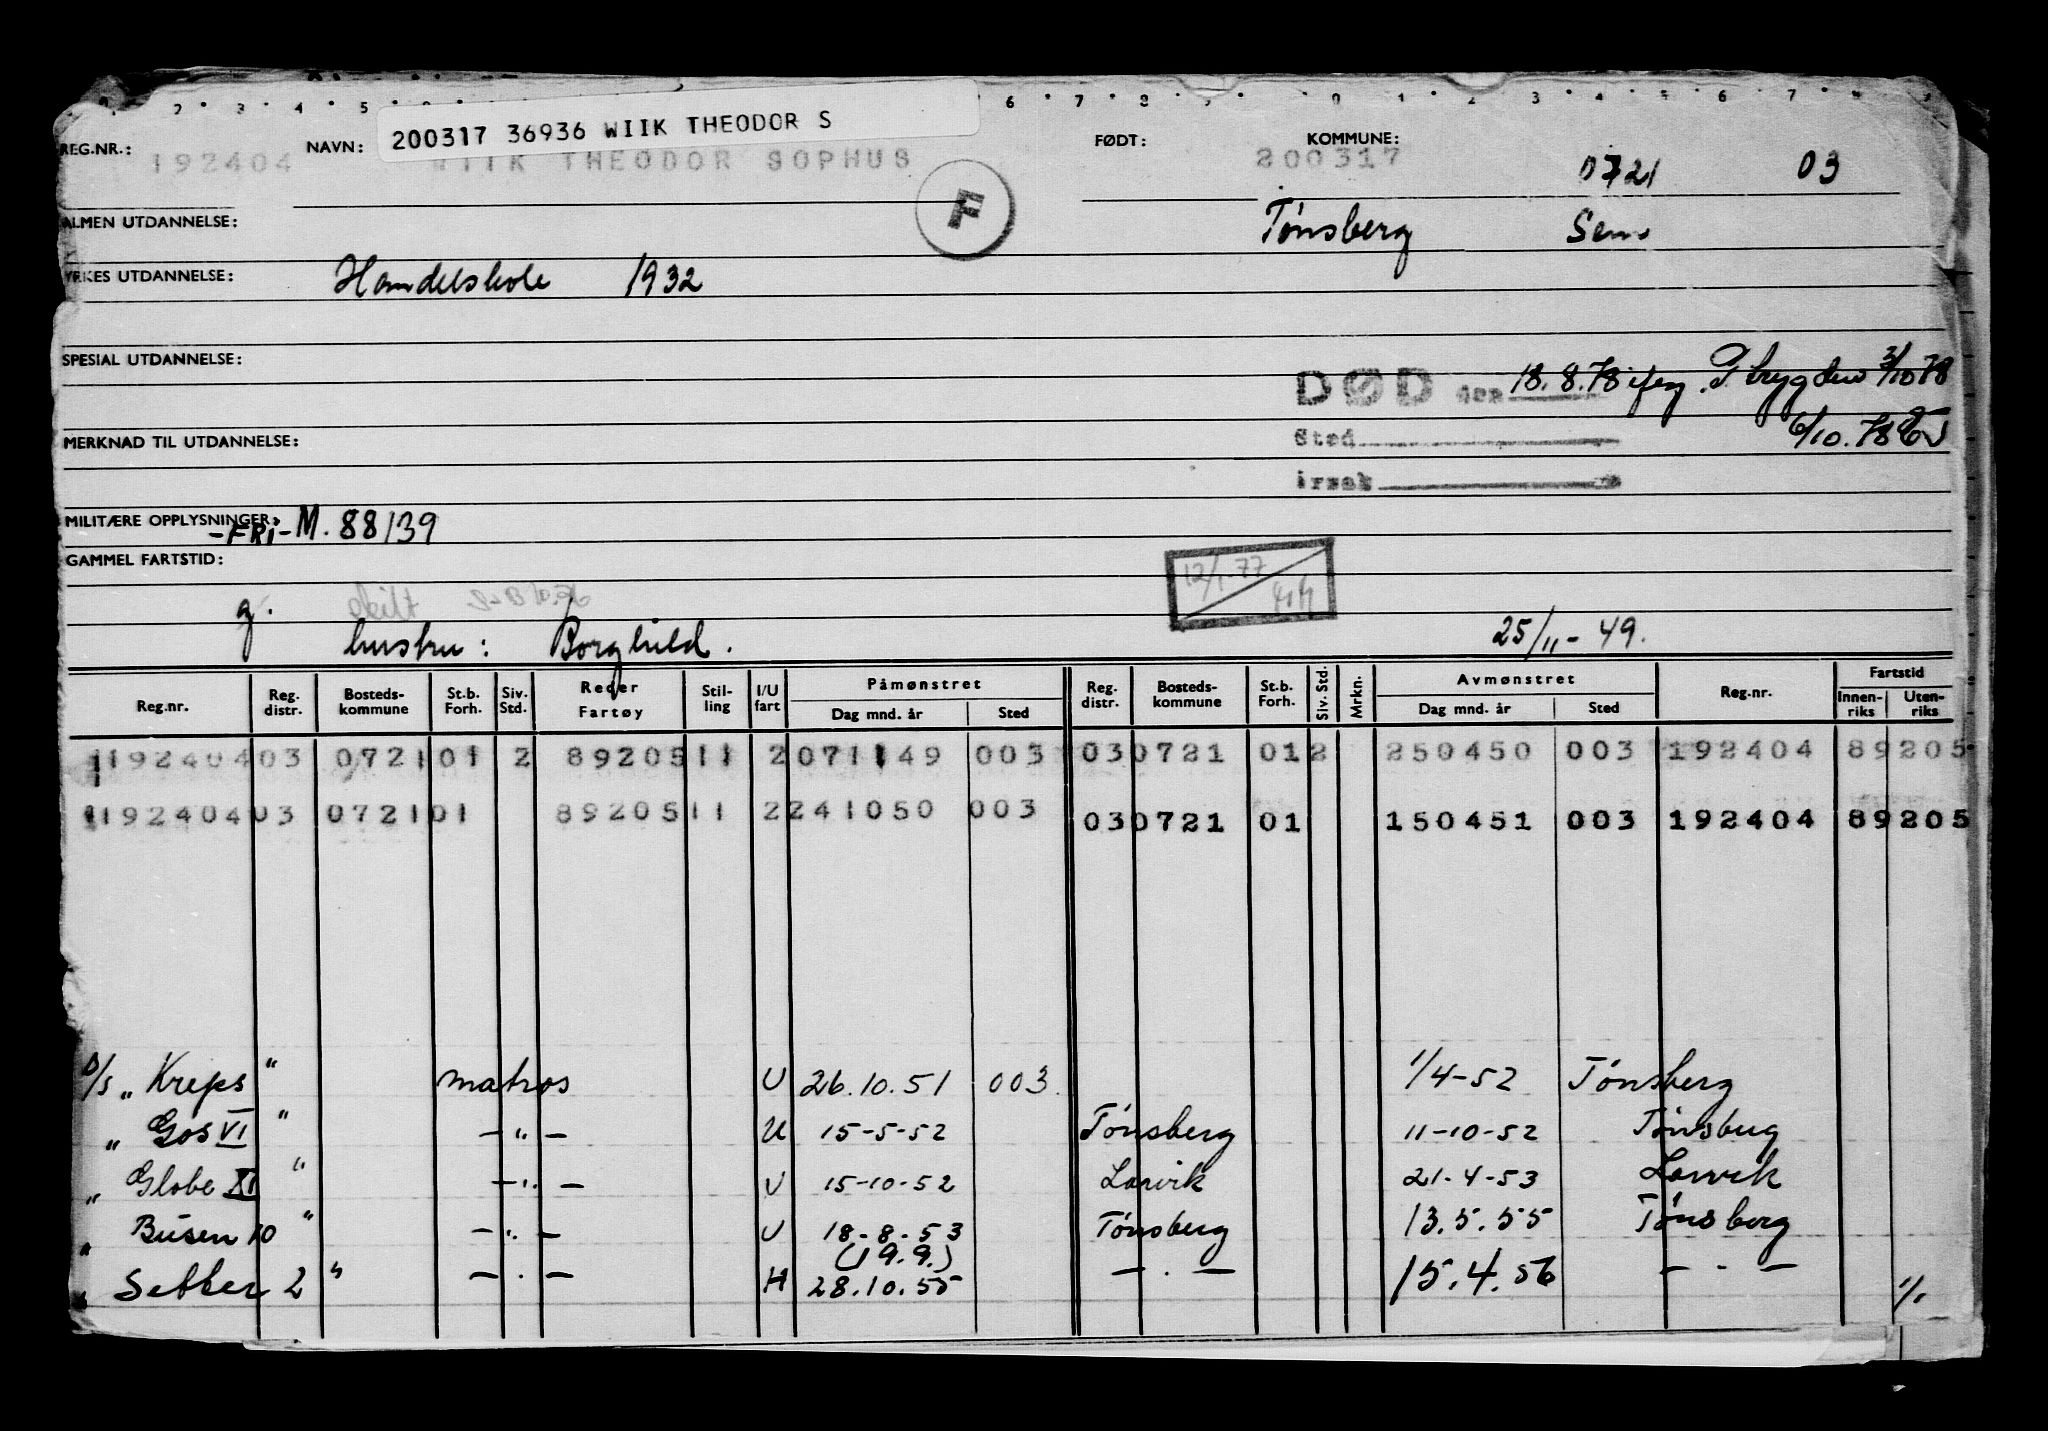 200317 36936 WIIK THEODOR S
REG.NR.: 192404 NAVN: WIIK THEODOR SOPHUS FØDT: 200317 KOMMUNE: 0721 03
F
ALMEN UTDANNELSE: Tönsberg Sem
YRKES UTDANNELSE: Handelskole 1932
SPESIAL UTDANNELSE:
DØD den 18.8.78 3/10 78
MERKNAD TIL UTDANNELSE: Sted 6/10.78
årsak
MILITÆRE OPPLYSNINGER: -FRI- M. 88/39
GAMMEL FARTSTID:
12/1-77
g. skilt
hustru: Borghild. 25/11-49.
Reg.nr. Reg. distr. Bosteds-kommune St.b. Forh. Siv. Std. Reder Fartøy Stil-ling I/U fart Påmønstret Dag mnd. år Sted Reg. distr. Bosteds-kommune St.b. Forh. Siv. Std. Mrkn. Avmønstret Dag mnd. år Sted Reg.nr. Fartstid Innen-riks Uten-riks
1192404 03 0721 01 2 89205 11 2 071149 003 03 0721 01 2 250450 003 192404 89205
1192404 03 0721 01 89205 11 2 241050 003 03 0721 01 150451 003 192404 89205
D/S " Kreps " matros U 26.10.51 003. 1/4-52 Tönsberg
" Gos VI " - " - U 15-5-52 Tönsberg 11-10-52 Tönsberg
" Globe XI " - " - U 15-10-52 Larvik 21-4-53 Larvik
" Busen 10 " - " - U 18-8-53 Tönsberg 13.5.55 Tönsberg
(19.9.)
" Setter 2 " - " - H 28.10.55 - . - 15.4.56 - . - 1/1